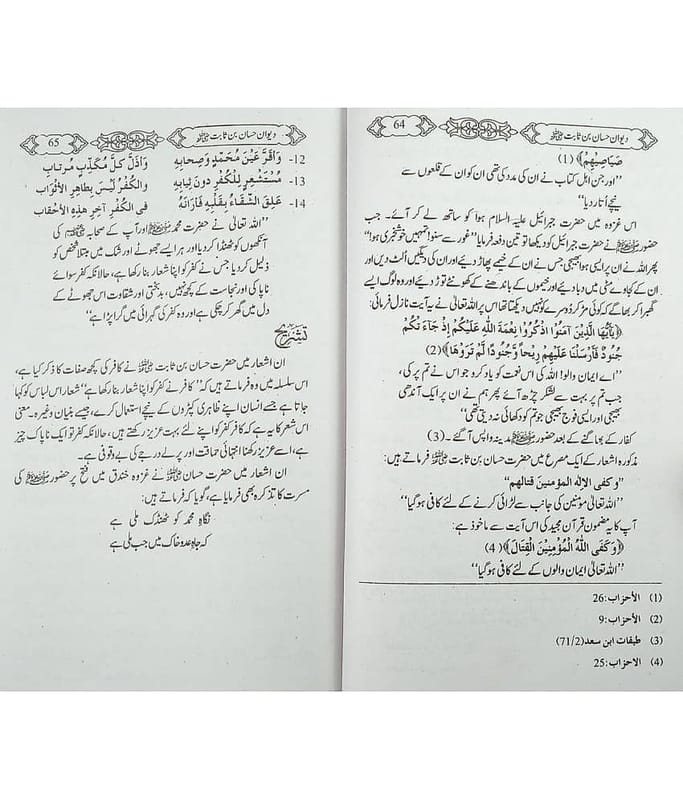 64
دیوان حسان بن ثابت رضی اللہ عنہ
صَيَاصِيهِمْ﴾ (1)
’’اور جن اہل کتاب نے ان کی مدد کی تھی ان کو ان کے قلعوں سے
نیچے اُتار دیا‘‘
اس غزوہ میں حضرت جبرائیل علیہ السلام ہوا کو ساتھ لے کر آئے۔ جب
حضور ﷺ نے حضرت جبرائیل کو دیکھا تو تین دفعہ فرمایا ’’غور سے سنو! تمہیں خوشخبری ہو‘‘
پھر اللہ نے ان پر ایسی ہوا بھیجی جس نے ان کے خیمے پھاڑ دیئے اور ان کی دیگیں اُلٹ دیں اور
ان کے کجاوے مٹی میں دبا دیئے اور خیموں کے باندھنے کے کھونٹے توڑ دیئے اور وہ لوگ ایسے
گھبرا کر بھاگے کہ کوئی مڑ کر دُوسرے کو نہیں دیکھتا تھا پس اللہ تعالیٰ نے یہ آیت نازل فرمائی:
﴿يٰاَيُّهَا الَّذِيْنَ آمَنُوْا اذْكُرُوْا نِعْمَةَ اللهِ عَلَيْكُمْ اِذْ جَاءَ تْكُمْ
جُنُودٌ فَاَرْسَلْنَا عَلَيْهِمْ رِيحاً وَّجُنُوْدًا لَّمْ تَرَوْهَا﴾ (2)
’’اے ایمان والو! اللہ کی اس نعمت کو یاد کرو جو اس نے تم پر کی،
جب تم پر بہت سے لشکر چڑھ آئے پھر ہم نے ان پر ایک آندھی
بھیجی اور ایسی فوج بھیجی جو تم کو دکھائی نہ دیتی تھی‘‘
کفار کے بھاگنے کے بعد حضور ﷺ مدینہ واپس آ گئے۔ (3)
مذکورہ اشعار کے ایک مصرع میں حضرت حسان بن ثابت رضی اللہ عنہ فرماتے ہیں:
’’و كفى الإله المؤمنين قتالهم‘‘
’’اللہ تعالیٰ مؤمنین کی جانب سے لڑائی کرنے کے لئے کافی ہو گیا‘‘
آپ کا یہ مضمون قرآن مجید کی اس آیت سے ماخوذ ہے:
﴿وَ كَفَى اللهُ الْمُؤْمِنِيْنَ الْقِتَالَ﴾ (4)
’’اللہ تعالیٰ ایمان والوں کے لئے کافی ہو گیا‘‘
(1) الأحزاب:26
(2) الأحزاب:9
(3) طبقات ابن سعد (71/2)
(4) الاحزاب:25
65
دیوان حسان بن ثابت رضی اللہ عنہ
12- وَاَقَرَّ عَيْنَ مُحَمَّدٍ وَّصِحَابِهِ وَاَذَلَّ كُلَّ مُكَذِّبٍ مُرتابِ
13- مُسْتَشْعِرٍ لِلْكُفْرِ دونَ ثِيابِهِ والكُفْرُ لَيْسَ بِطاهِرِ الأَثْوَابِ
14- عَلِقَ الشَّقَاءُ بِقَلْبِهِ فَأَرَانَهُ فى الكُفْرِ آخِرَ هٰذِهِ الأَحْقَابِ
’’اللہ تعالیٰ نے حضرت محمد ﷺ اور آپ کے صحابہ کی
آنکھوں کو ٹھنڈا کر دیا اور ہر ایسے جھوٹے اور شک میں مبتلا شخص کو
ذلیل کر دیا جس نے کفر کو اپنا شعار بنا رکھا ہے، حالانکہ کفر سوائے
ناپاکی اور نجاست کے کچھ نہیں، بدبختی اور شقاوت اس جھوٹے کے
دل میں گھر کر چکی ہے اور وہ کفر کی گہرائی میں گرا پڑا ہے‘‘
تشریح
ان اشعار میں حضرت حسان بن ثابت رضی اللہ عنہ نے کافر کی کچھ صفات کا ذکر کیا ہے،
اس سلسلہ میں وہ فرماتے ہیں کہ ’’کافر نے کفر کو اپنا شعار بنا رکھا ہے‘‘ شعار اس لباس کو کہا
جاتا ہے جسے انسان اپنے ظاہری کپڑوں کے نیچے استعمال کرے، جیسے بنیان وغیرہ۔ معنی
اس شعر کا یہ ہے کہ کافر کفر کو اپنے لئے بہت عزیز رکھتے ہیں، حالانکہ کفر تو ایک ناپاک چیز
ہے، اسے عزیز رکھنا انتہائی حماقت اور پرلے درجے کی بے وقوفی ہے۔
ان اشعار میں حضرت حسان نے غزوہ خندق میں فتح پر حضور ﷺ کی
مسرت کا تذکرہ بھی فرمایا ہے، گویا کہ فرماتے ہیں:
نگاہِ محمد کو ٹھنڈک ملی ہے
کہ جاہِ عدو خاک میں جب ملی ہے